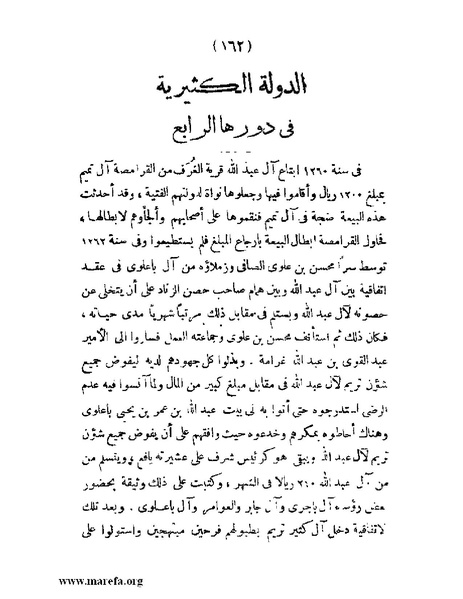 (١٦٢)
الدولة الكثيرية
فى دورها الرابع
فى سنة ١٢٦٠ ابتاع آل عبد الله قرية الغُرَف من القرامصة آل تميم
بمبلغ ١٢٠٠ ريال وأقاموا فيها وجعلوها نواة لدولتهم الفتية ، وقد أحدثت
هذه البيعة ضجة فى آل تميم فنقموها على أصحابهم وألجأوهم لابطالها ،
فحاول القرامصة ابطال البيعة بارجاع المبلغ فلم يستطيعوا وفى سنة ١٢٦٢
توسط سراً محسن بن علوى الصافى وزملاؤه من آل باعلوى فى عقد
اتفاقية بين آل عبد الله وبين همام صاحب حصن الرناد على أن يتخلى عن
حصونه لآل عبد الله ويستلم فى مقابل ذلك مرتباً شهرياً مدى حياته ،
فكان ذلك ثم استأنف محسن بن علوى وجماعته العمل فساروا الى الأمير
عبد القوى بن عبد الله غرامة . وبذلوا كل جهودهم لديه ليفوض جميع
شؤن تريم لآل عبد الله فى مقابل مبلغ كبير من المال ولما آنسوا فيه عدم
الرضى استدرجوه حتى أتوا به فى بيت عبد الله بن عمر بن يحيى باعلوى
وهناك أحاطوه بمكرهم وخدعوه حيث وافقهم على أن يفوض جميع شؤن
تريم لآل عبد الله ويبقى هو كرئيس شرف على عشيرته يافع ويتسلم من
آل عبد الله ٣١٠ ريالا فى الشهر ، وكتبت على ذلك وثيقة بحضور
بعض رؤسه آل باجرى وآل جابر والعوامر وآل باعلوى . وبعد تلك
لاتفاقية دخل آل كثير تريم بطبولهم فرحين مبتهجين واستولوا على
www.marefa.org